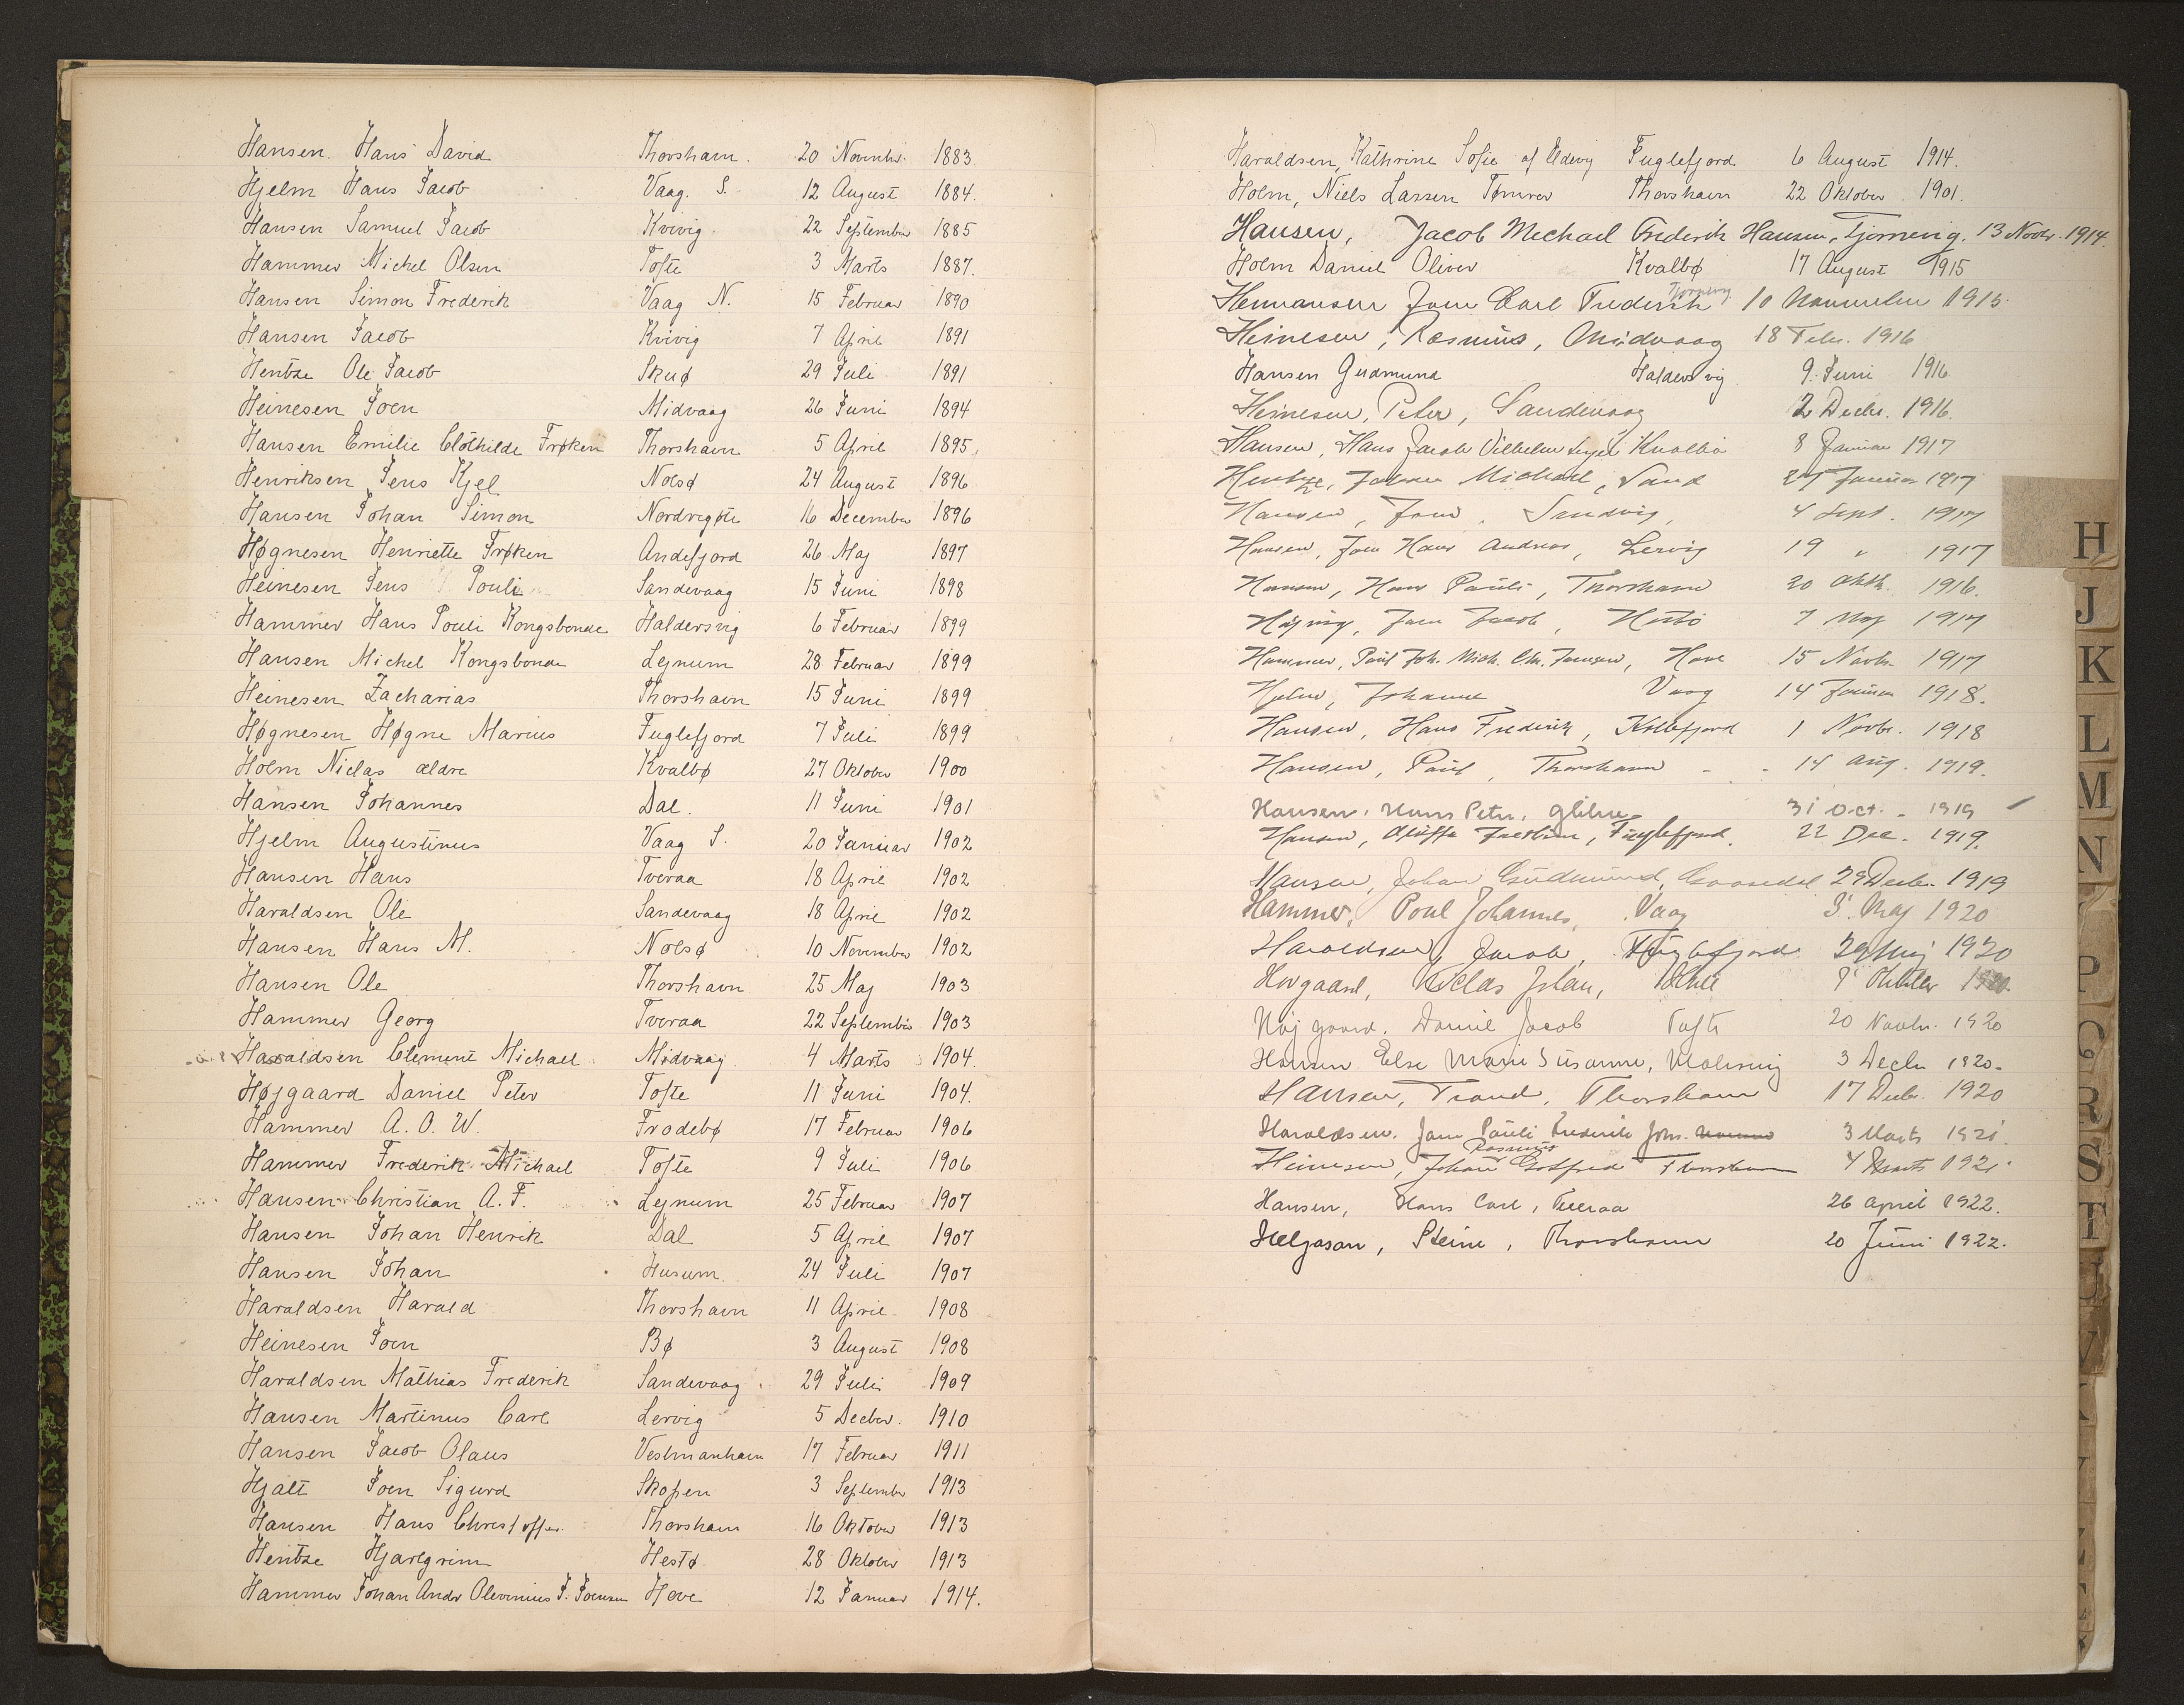 Hansen. Hans David Thorshavn. 20 Novembr. 1883.
Hjelm Hans Jacob Vaag. S. 12 August 1884.
Hansen Samuel Jacob Kvivig 22 September 1885
Hammer Michel Olsen Tofte 3 Marts 1887.
Hansen Simon Frederik Vaag N. 15 Februar 1890
Hansen Jacob Kvivig 7 April 1891
Hentze Ole Jacob Skuø 29 Juli 1891
Heinesen Joen Midvaag 26 Juni 1894
Hansen Emilie Clothilde Frøken Thorshavn 5 April 1895.
Henriksen Jens Kjel Nolsø 24 August 1896
Hansen Johan Simon Nordregøte 16 December 1896
Høgnesen Henriette Frøken Andefjord 26 Maj 1897
Heinesen Jens Pouli Sandevaag 15 Juni 1898
Hammer Hans Pouli Kongsbonde Haldersvig 6 Februar 1899
Hansen Michel Kongsbonde Lejnum 28 Februar 1899
Heinesen Zacharias Thorshavn 15 Juni 1899
Høgnesen Høgne Marius Fuglefjord 7 Juli 1899
Holm Niclas ældre Kvalbø 27 Oktober 1900
Hansen Johannes Dal. 11 Juni 1901
Hjelm Augustinus Vaag S. 20 Januar 1902
Hansen Hans Tveraa 18 April 1902
Haraldsen Ole Sandevaag 18 April 1902
Hansen Hans M. Nolsø 10 November 1902
Hansen Ole Thorshavn 25 Maj 1903
Hammer Georg Tveraa 22 September 1903
Haraldsen Clement Michael Midvaag 4 Marts 1904.
Højgaard Daniel Peter Tofte 11 Juni 1904.
Hammer A. O. W. Frodebø 17 Februar 1906
Hammer Frederik Michael Tofte 9 Juli 1906
Hansen Christian A. F. Lejnum 25 Februar 1907
Hansen Johan Henrik Dal 5 April 1907
Hansen Johan Husum 24 Juli 1907
Haraldsen Harald Thorshavn 11 April 1908
Heinesen Joen Bø 3 August 1908
Haraldsen Mathias Frederik Sandevaag 29 Juli 1909
Hansen Martinus Carl Lervig 5 Decber. 1910
Hansen Jacob Olaus Vestmanhavn 17 Februar 1911
Hjalt Joen Sigurd Skopen 3 September 1913
Hansen Hans Christoffer Thorshavn 16 Oktober 1913
Hentze Hjarlgrim Hestø 28 Oktober 1913
Hammer Johan Andr Olevinius J. Joensen Hove 12 Januar 1914.
Haraldsen, Kathrine Sofie af Fuglefjord 6 August 1914.
Holm, Niels Larsen Tømrer Thorshavn 22 Oktober 1901.
Hansen, Jacob Mechael Frederik Hansen, Tjørnevig. 13 Novbr. 1914.
Holm Daniel Oliver Kvalbø 17 August 1915
Tjørnevig
Hermansen Joen Carl Frederik 10 November 1915.
Heinesen, Rasmus, Midvaag 18 Febr. 1916
Hansen Gudmund Haldersvig 9. Juni 1916
Heinesen, Peter, Sandevaag 2 Decbr. 1916.
Hansen, Hans Jacob Vilhelm Kvalbø 8 Januar 1917
Hentze, Michael, Sand 27 Januar 1917
Hansen, Joen, Sandvig, 4 Sept. 1917
Hansen, Joen Hans Andreas, Lervig 19 " 1917
Hansen, Hans Pauli, Thorshavn 20 Oktb. 1916.
Joen Jacob, Hestø 7 Maj 1917
Hammer, Poul Joh. Mich. Chr. Joensen, Hove 15 Novbr. 1917
Hjelm, Johanne Vaag 14 Januar 1918.
Hansen, Hans Frederik, Kollefjord 1 Novbr. 1918
Hansen, Poul, Thorshavn - - 14 Aug. 1919.
Hansen, Hans Peter, 31 Oct. - 1919
Hansen, Fuglefjord. 22 Dec. 1919.
Hansen, Johan Gudmund, 29 Decbr. 1919
Hammer, Poul Johannes, Vaag 3' Maj 1920
Haraldsen, Jacob, Fuglefjord 29 Maj 1920
Hovgaard, Niclas Johan, Oktober 1920
Højgaard. Daniel Jacob Tofte 20 Novbr. 1920
Hansen Else Marie Susanne, 3 Decbr 1920.
Hansen, Trond, Thorshavn 17 Decbr. 1920
Haraldsen. Joen Pauli Frederik Joh. 3 Marts 1921.
Rasmus
Heinesen, Johan Gotfred Thorshavn 4 Marts 1921.
Hansen, Hans Carl, Tveraa 26 April 1922.
Helgason, Steinn, Thorshavn 20 Juni 1922.
H
J
K
L
M
N
P
Q
R
S
T
U
V